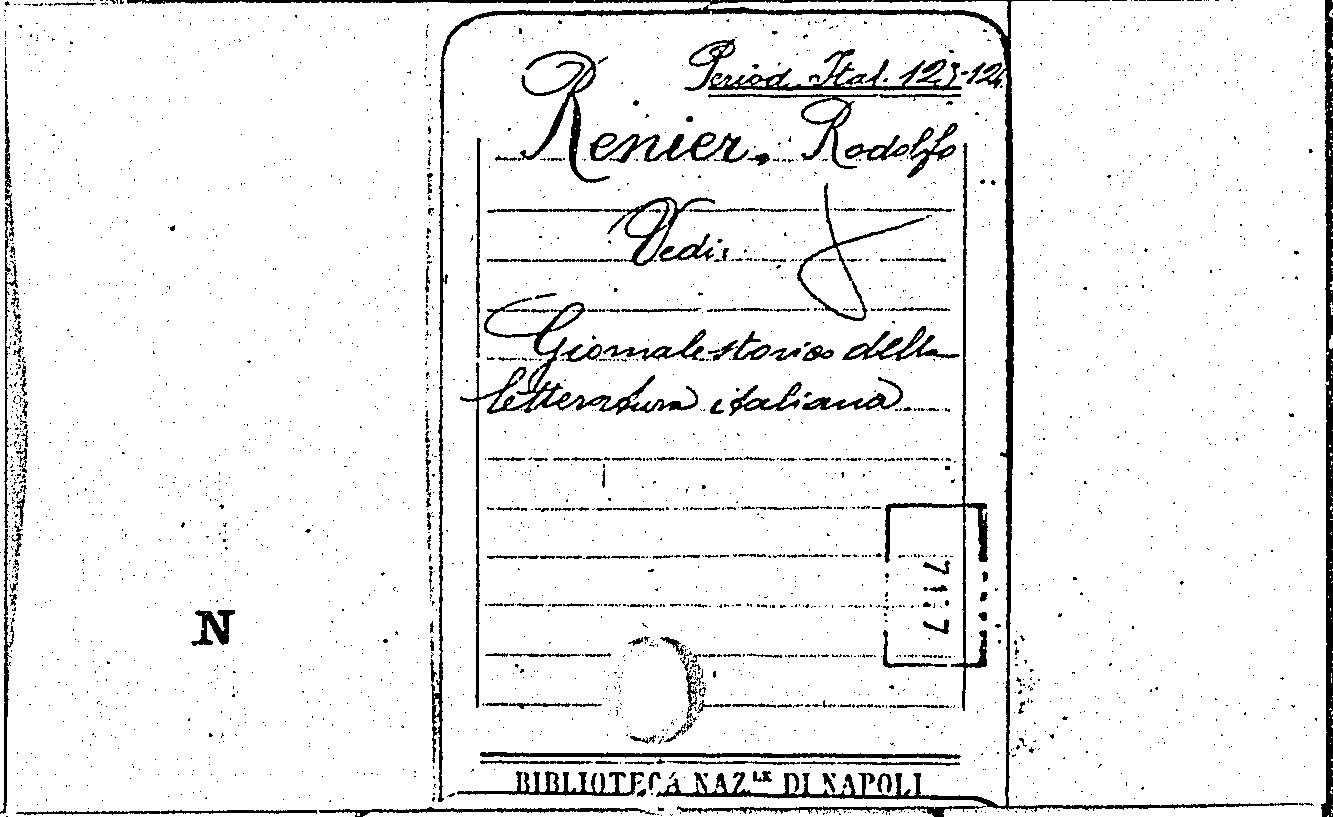 Period. Ital. 123-124
Renier. Rodolfo
Vedi:
Giornale storico della
letteratura italiana
N
BIBLIOTECA NAZ.LE DI NAPOLI